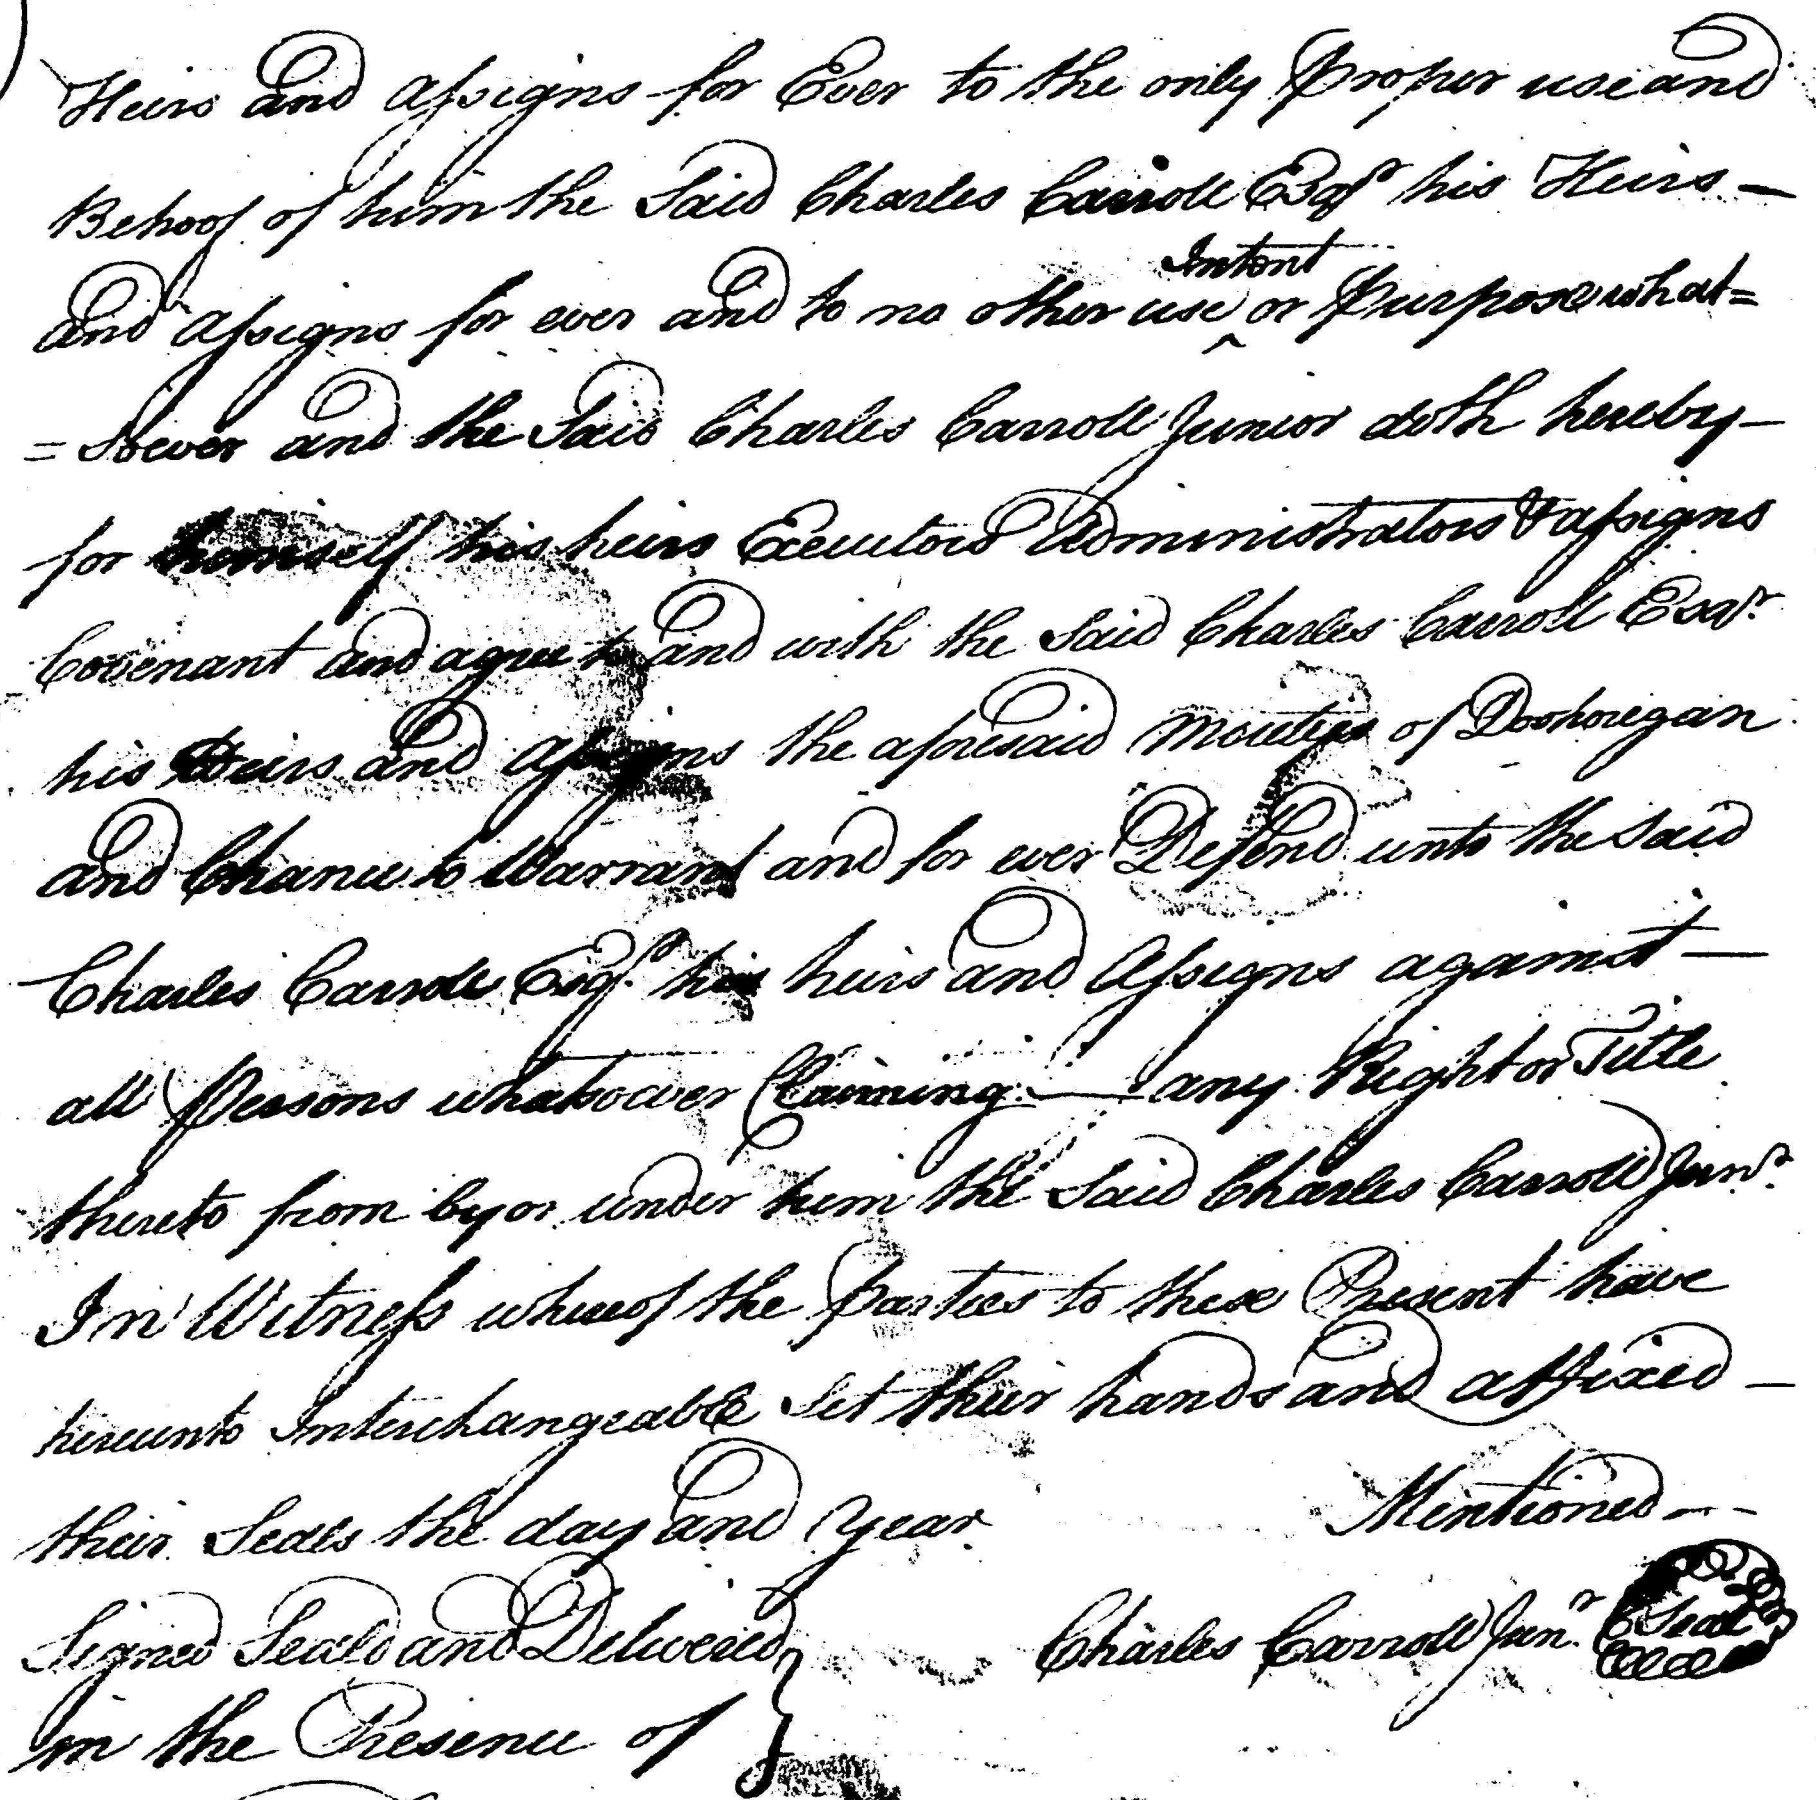 Heirs and Assigns for Ever to the only Proper use and
Behoof of him the Said Charles Carroll Esqr his Heirs —
and Assigns for ever and to no other use ^ Intent or Purpose what=
=Soever and the Said Charles Carroll Junior doth hereby —
for himself his heirs Executors Administrators & assigns
Covenant and agree to and with the Said Charles Carroll Esqr.
his Heirs and Assigns the aforesaid Moieties of Doohoregan
and Chance to Warrant and for ever Defend unto the Said
Charles Carroll Esqr. his heirs and Assigns against —
all Persons whatsoever Claiming — any Right or Title
thereto from by or under him the Said Charles Carroll Junr.
In Witness whereof the Parties to these Present have
hereunto Interchangeable Set their hands and affixed —
their Seals the day and Year Mentioned —
Signed Seald and Delivered } Charles Carroll Junr. Seal
in the Presence of